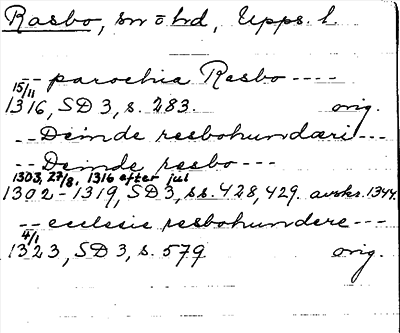 Rasbo, sn o hd, Upps. l.
-- parochia Rasbo ----
15/11
1316, SD 3, s. 283. orig.
-- Deinde resbohundæri ---
-- Deinde resbo ---
1303, 27/8, 1316 efter jul
1302-1319, SD 3, ss. 428, 429. avskr. 1344.
-- ecclesie resbohundere ---
4/1
1323, SD 3, s. 579 orig.